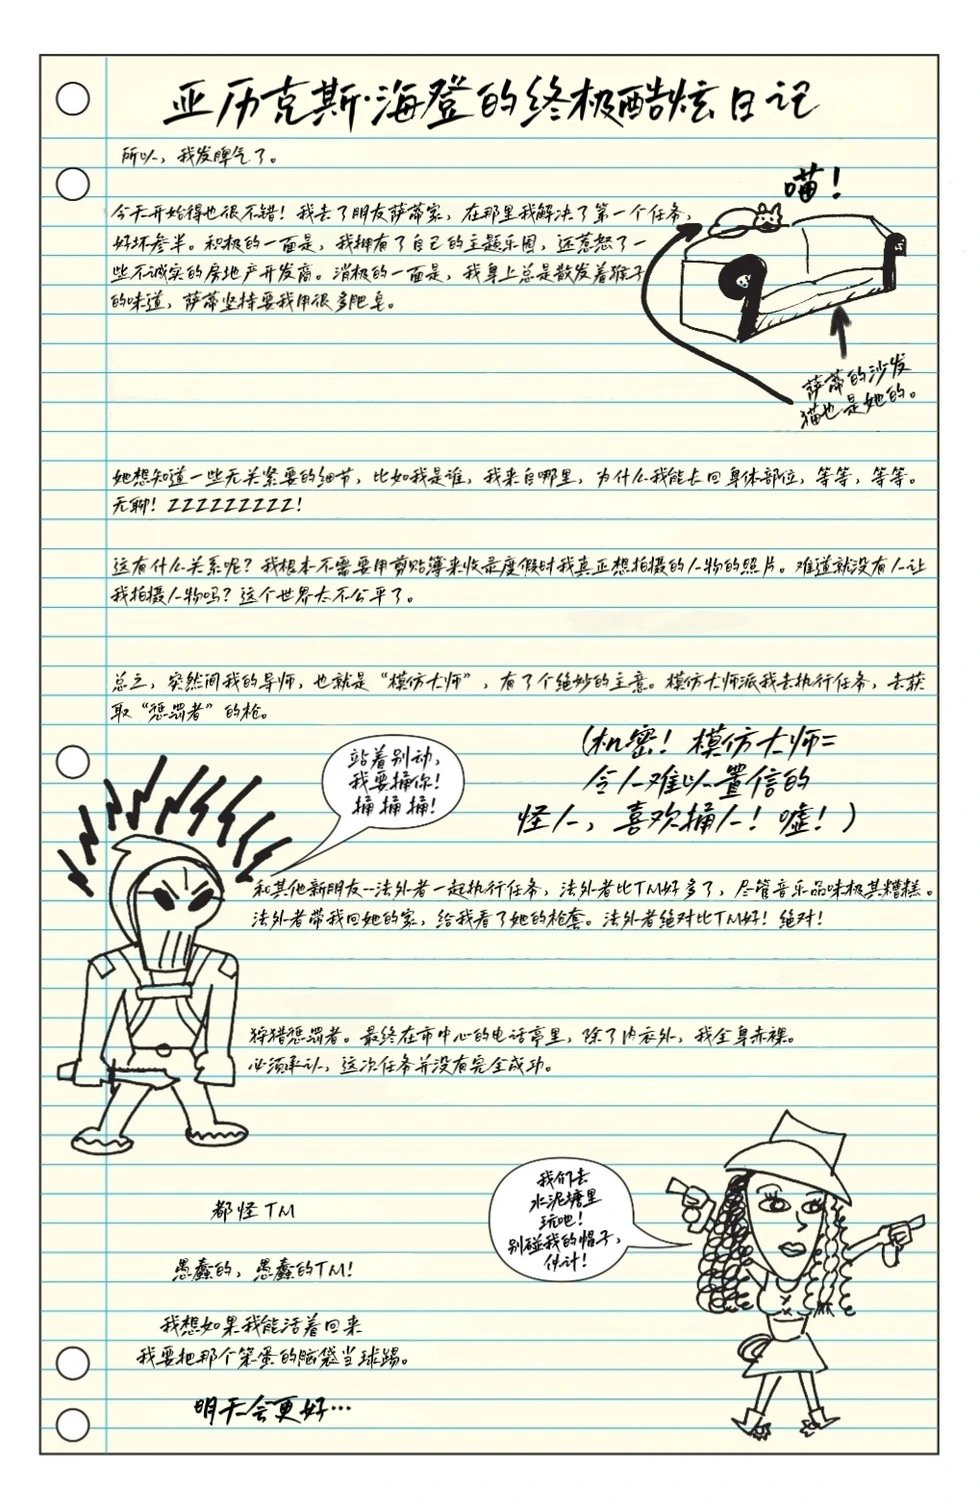 亚历克斯·海登的终极酷炫日记
所以，我发脾气了。
喵！
今天开始得也很不错！我去了朋友萨蒂家，在那里我解决了第一个任务，
好坏参半。积极的一面是，我拥有了自己的主题乐园，还惹怒了一
些不诚实的房地产开发商。消极的一面是，我身上总是散发着猴子
的味道，萨蒂坚持要我用很多肥皂。
萨蒂的沙发
猫也是她的。
她想知道一些无关紧要的细节，比如我是谁，我来自哪里，为什么我能长回身体部位，等等，等等。
无聊！ZZZZZZZZZ！
这有什么关系呢？我根本不需要用剪贴簿来收录度假时我真正想拍摄的人物的照片。难道就没有人让
我拍摄人物吗？这个世界太不公平了。
总之，突然间我的导师，也就是“模仿大师”，有了个绝妙的主意。模仿大师派我去执行任务，去获
取“惩罚者”的枪。
（机密！模仿大师=
令人难以置信的
怪人，喜欢捅人！嘘！）
站着别动，
我要捅你！
捅捅捅！
和其他新朋友--法外者一起执行任务，法外者比TM好多了，尽管音乐品味极其糟糕。
法外者带我回她的家，给我看了她的枪套。法外者绝对比TM好！绝对！
狩猎惩罚者。最终在市中心的电话亭里，除了内衣外，我全身赤裸。
必须承认，这次任务并没有完全成功。
我们去
水泥塘里
玩吧！
别碰我的帽子，
伙计！
都怪TM
愚蠢的，愚蠢的TM！
我想如果我能活着回来
我要把那个笨蛋的脑袋当球踢。
明天会更好…